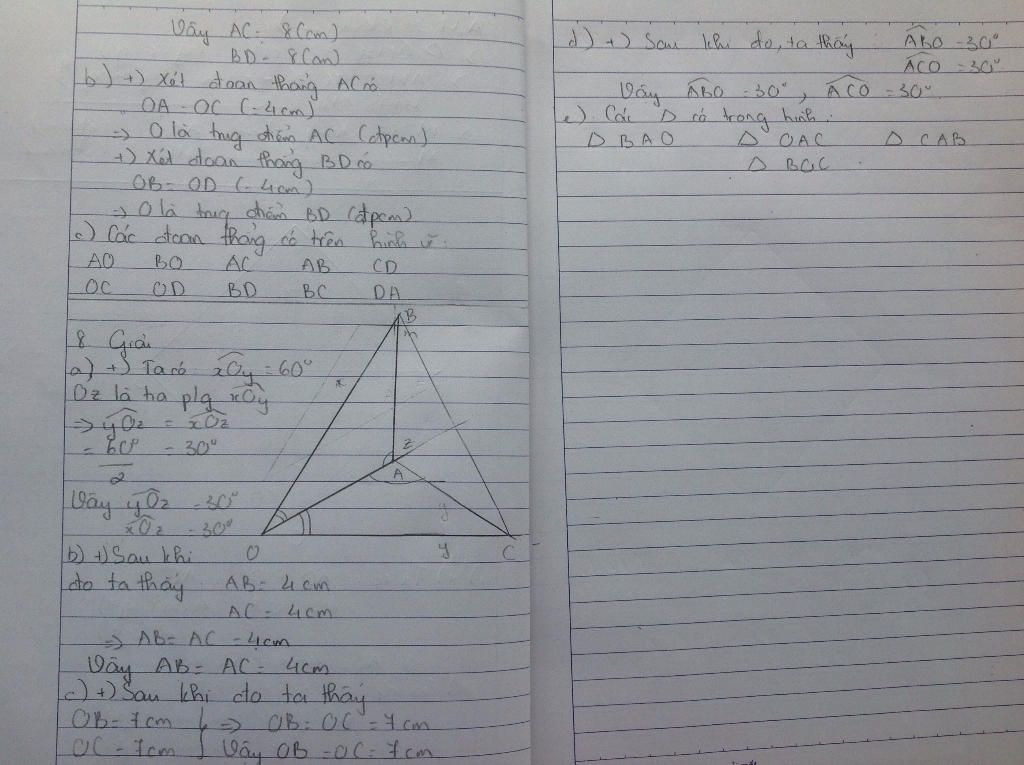 Vãy AC = 8(cm)
BD = 8(cm)
b) +) Xét đoan thẳng AC có
OA = OC (=4cm)
=> O là trug điểm AC (đpcm)
+) Xét đoan thẳng BD có
OB = OD (=4cm)
=> O là trug điểm BD (đpcm)
c) Các đoan thẳg có trên hình vẽ.
AO BO AC AB CD
OC OD BD BC DA
8 Giải
a) +) Ta có xOy = 60°
Oz là tia p/g xOy
=> yOz = xOz
= 60°/2 = 30°
Vãy yOz = 30°
xOz = 30°
b) +) Sau khi
đo ta thấy AB = 4 cm
AC = 4 cm
=> AB = AC = 4cm
Vãy AB = AC = 4cm
c) +) Sau khi đo ta thấy
OB = 7cm } => OB = OC = 7cm
OC = 7cm } Vãy OB = OC = 7cm
B
x
z
A
y
O y C
d) +) Sau khi đo, ta thấy ABO = 30°
ACO = 30°
Vãy ABO = 30°, ACO = 30°
e) Các Δ có trong hình:
Δ BAO Δ OAC Δ CAB
Δ BOC